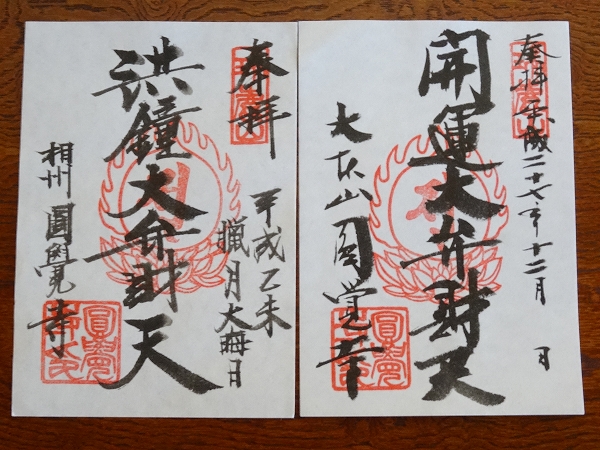 奉拝 平成二十七年十二月 日
開運大弁財天
大本山圓覚寺
奉拝
平成乙未
臘月大晦日
洪鐘大弁財天
相州 圓覺寺